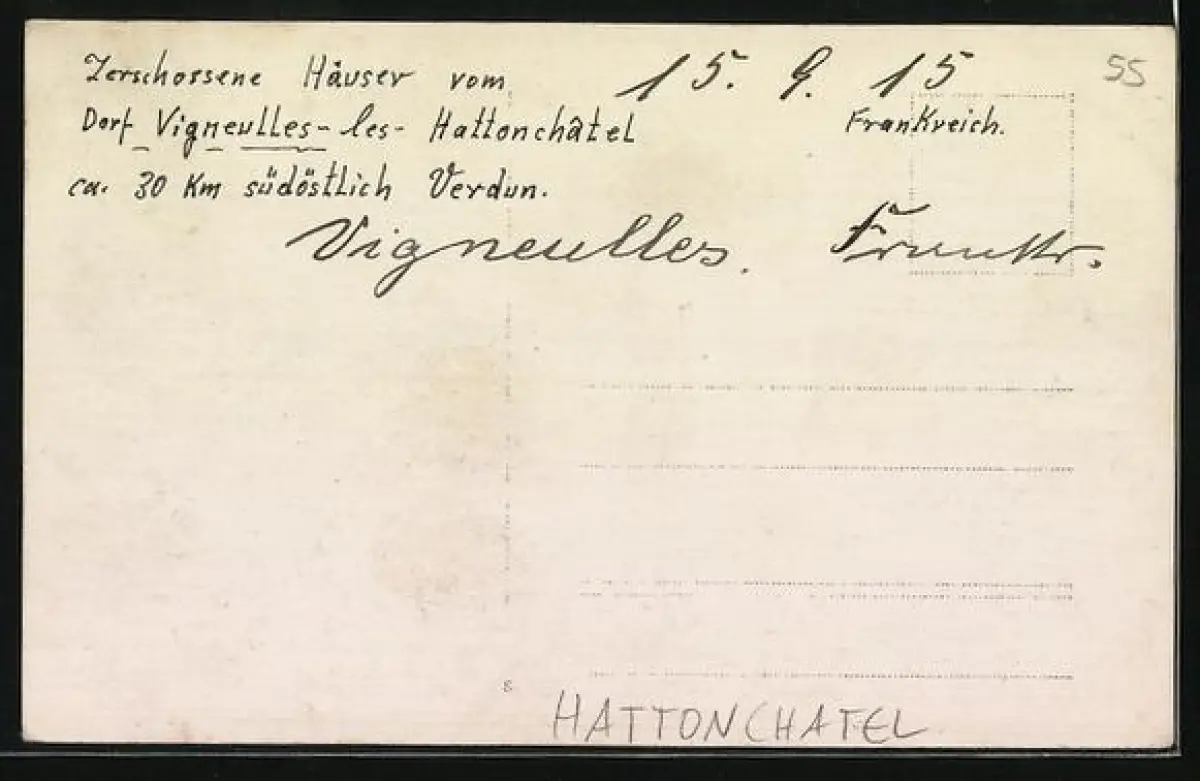 Zerschossene Häuser vom 15. 9. 15 55
Dorf Vigneulles-les-Hattonchâtel Frankreich.
ca. 30 Km südöstlich Verdun.
Vigneulles. Frankr.
8
HATTONCHATEL